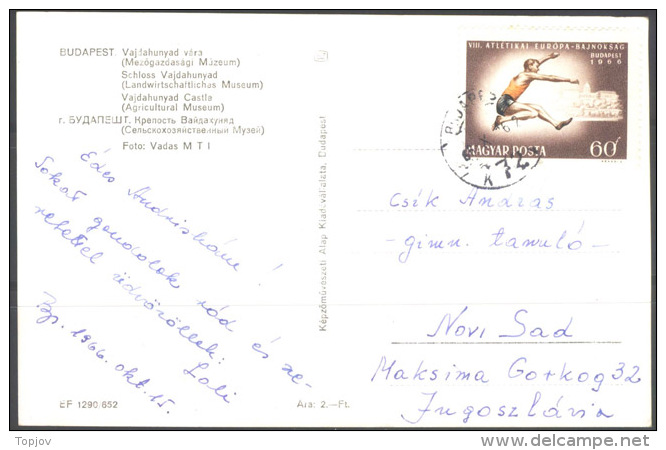 BUDAPEST. Vajdahunyad vára
(Mezőgazdasági Múzeum)
Schloss Vajdahunyad
(Landwirtschaftliches Museum)
Vajdahunyad Castle
(Agricultural Museum)
г. БУДАПЕШТ. Крепость Вайдахуняд
(Сельскохозяйственный Музей)
Foto: Vadas M T I
Édes Andriskám!
Sokat gondolok rád és sze-
retettel üdvözöllek:
Loli
Bp. 1966. okt. 15.
EF 1290/652
Ára: 2.—Ft.
Képzőművészeti Alap Kiadóvállalata, Budapest
VIII. ATLÉTIKAI EURÓPA-BAJNOKSÁG
BUDAPEST
1966
MAGYAR POSTA
60f
BUDAPEST
72
Csík András
- gimn. tanuló -
Novi Sad
Maksima Gorkog 32
Jugoszlávia
Topjov
www.delcampe.net